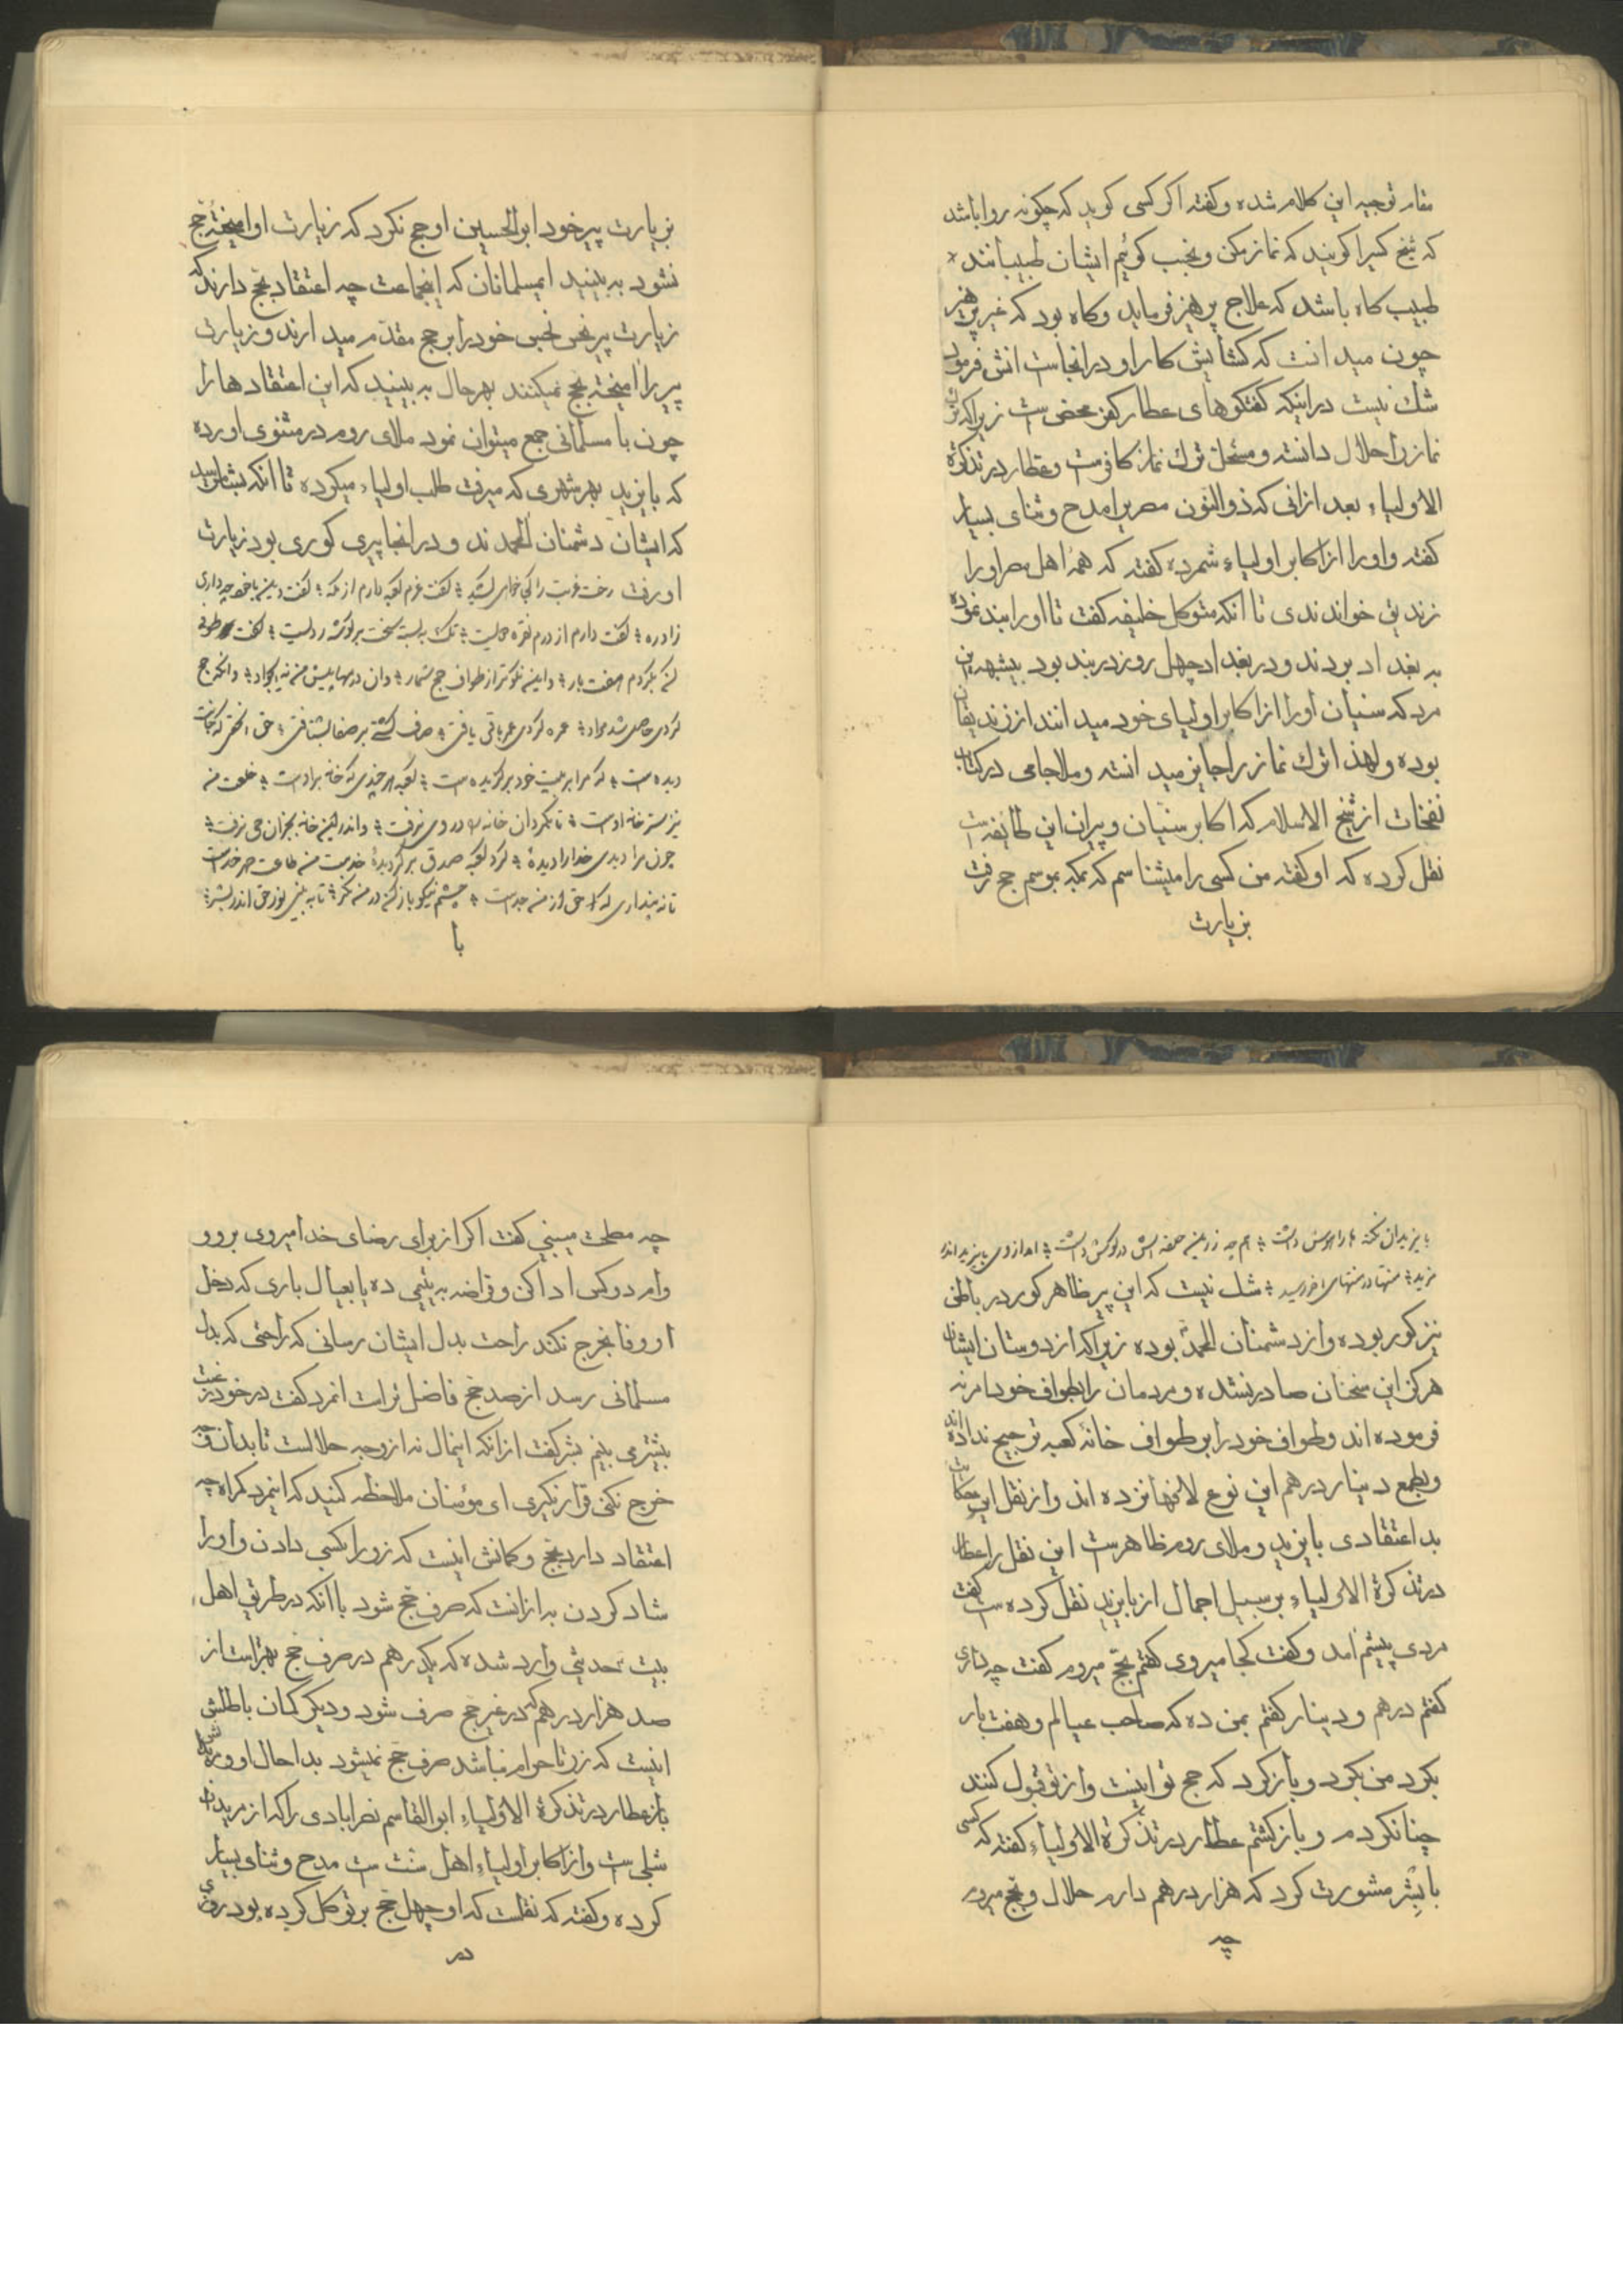 مقام توجیه این کلام شده و گفته اگر کسی گوید که چگونه روا باشد
که شیخ کسیرا گویند که نماز مکن و نخسب گوئیم ایشان طبیبانند
طبیب گاه باشد که علاج پرهیز فرماید و گاه بود که غیر پرهیز
چون میدانست که گشایش کار او در انجاست انش فرمود
شك نیست در اینکه گفتگوهای عطار کفر محض ست زیرا که ترك
نماز را حلال دانسته و مستحل ترك نماز کافرست و عطار در تذکرة
الاولیاء بعد از انی که ذوالنون مصریرا مدح و ثنای بسیار
گفته و اورا از اکابر اولیاء شمرده گفته که همهٔ اهل مصر اورا
زندیق خواندندی تا انکه متوکل خلیفه گفت تا اورا بند نموده
به بغداد بردند و در بغداد چهل روز در بند بود بیشبهه این
مرد که سنیان اورا از اکابر اولیای خود میدانند از زندیقان
بوده و لهذا ترك نماز را جایز میدانسته و ملا جامی در کتاب
نفحات از شیخ الاسلام که اکابر سنیان و پیران این طایفه است
نقل کرده که او گفته من کسی را میشناسم که بمکه بموسم حج رفت
بزیارت
بزیارت پیر خود ابوالحسین او حج نکرد که زیارت او امیختهٔ حج
نشود به بینید ایمسلمانان که اینجماعت چه اعتقاد بحج دارند که
زیارت پیر نحس نجس خود را بر حج مقدم میدارند و زیارت
پیر را امیختهٔ بحج نمیکنند بهر حال به بینید که این اعتقادها را
چون با مسلمانی جمع میتوان نمود ملای روم در مثنوی اورده
که بایزید بهر شهری که میرفت طلب اولیاء میکرده تا انکه بشام رسید
که ایشان دشمنان ال محمدند و در انجا پیری کوری بود بزیارت
او رفت رخت غربت را کجا خواهی کشید ؛ گفت عزم کعبه دارم از مکه ؛ گفت هین با خود چه داری
زاد ره ؛ گفت دارم از درم نقره دویست ؛ نك به بسته سخت بر گوشه ردیست ؛ گفت طوفی
کن بگردم هفت بار ؛ واینه نکوتر از طواف حج شمار ؛ وان درمها پیش من نه ای جواد ؛ دانکه حج
کردی حاصل شد مراد ؛ عمره کردی عمر باقی یافتی ؛ صاف گشتی بر صفا بشتافتی ؛ حق ان حقی که جانت
دیده است ؛ که مرا بر بیت خود بر گزیده است ؛ کعبه هر چندی که خانه بر اوست ؛ خلقت من
نیز خانه سر اوست ؛ تا بکرد ان خانه را در وی نرفت ؛ واندر این خانه بجز ان حی نرفت ؛
چون مرا دیدی خدا را دیدهٔ ؛ گرد کعبه صدق بر گردیدهٔ خدمت من طاعت حمد خداست
تا نه پنداری که حق از من جداست ؛ چشم نیکو باز کن در من نگر ؛ تا به بینی نور حق اندر بشر ؛
با
بایزید ان نکته ها را هوش داشت ؛ همچه زرین حلقه اش در گوش داشت ؛ امد از وی بایزید اندر
مزید ؛ منتها در منتهای اخر رسید ؛ شك نیست که این پیر ظاهر کور در باطن
نیز کور بوده و از دشمنان ال محمد بوده زیرا که از دوستان ایشان
هرگز این سخنان صادر نشده و مردمان را بطواف خود امر نه
فرموده اند و طواف خود را بر طواف خانهٔ کعبه ترجیح نداده اند
و بطمع دینار و درهم این نوع لافها نزده اند و از نقل این حکایت
بد اعتقادی بایزید و ملای روم ظاهرست این نقل را عطار
در تذکرة الاولیاء بر سبیل اجمال از بایزید نقل کرده ست گفت
مردی پیشم امد و گفت کجا میروی گفتم بحج میروم گفت چه داری
گفتم درهم و دینار گفتم بمن ده که صاحب عیالم و هفت بار
بگرد من بگرد و باز گرد که حج تو اینست و از تو قبول کنند
چنان کردم و باز گشتم عطار در تذکرة الاولیاء گفته که کسی
با بشر مشورت کرد که هزار درهم دارم حلال و بحج میروم
چه
چه مصلحت میبینی گفت اگر از برای رضای خدا میروی برو و
وام دو کس ادا کن و قراضه به یتیمی ده یا بعیال باری که دخل
او وفا بخرج نکند راحت بدل ایشان رسانی که راحتی که بدل
مسلمانی رسد از صد حج فاضل تر است انمرد گفت در خود رغبت
بیشتری بینم بشر گفت از انکه اینمال نه از وجه حلالست تا بدان وجه
خرج نکنی قرار نگیری ای مؤمنان ملاحظه کنید که اینمرد گمراه چه
اعتقاد دارد بحج و گمانش اینست که زر را بکسی دادن و اورا
شاد کردن به از انست که صرف حج شود با انکه در طریق اهل
بیت حدیثی وارد شده که یکدرهم در صرف حج بهتر است از
صد هزار درهم که در غیر حج صرف شود و دیگر گمان باطلش
اینست که زر تا حرام نباشد صرف حج نمیشود بدا حال او و
باز عطار در تذکرة الاولیاء ابوالقاسم نصرابادی را که از مریدان
شبلی ست و از اکابر اولیاء اهل سنت ست مدح و ثنای بسیار
کرده و گفته که نقلست که او چهل حج بر توکل کرده بود روزی
در